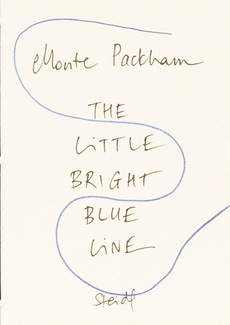 Monte Packham
THE
LiTTLE
BRIGHT
BLUE
LiNE
Steidl